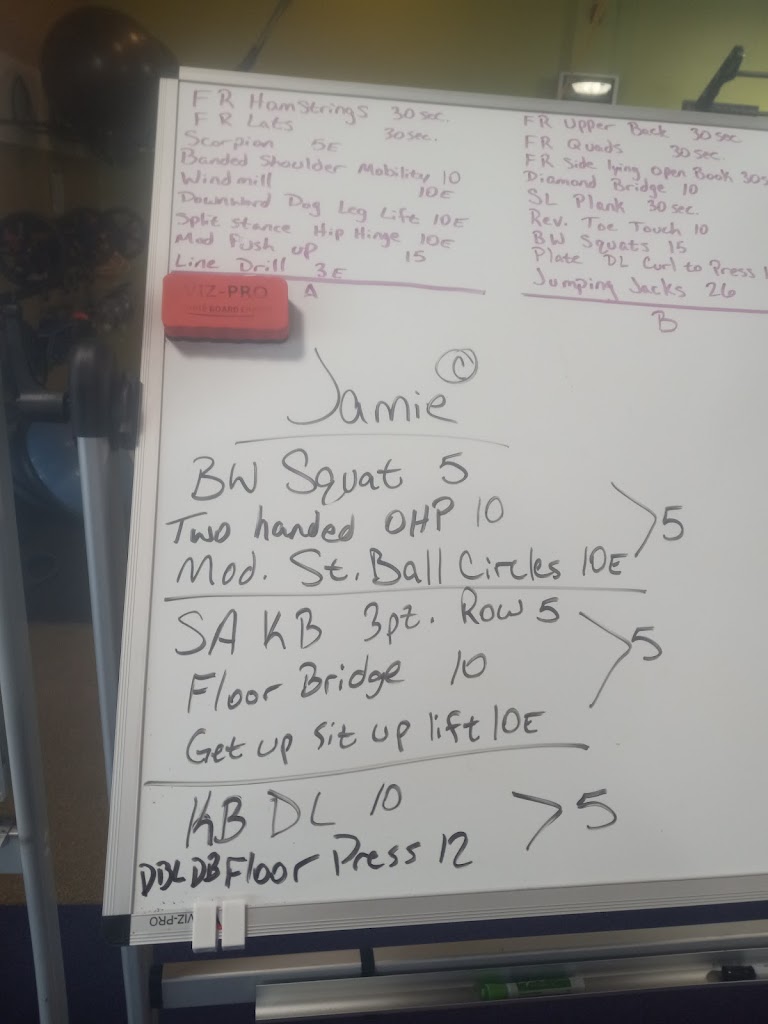 FR Hamstrings 30 sec.
FR Lats 30 sec.
Scorpion 5E
Banded Shoulder Mobility 10
Windmill 10E
Downward Dog Leg Lift 10E
Split Stance Hip Hinge 10E
Mod Push up 15
Line Drill 3E
A
FR Upper Back 30 sec
FR Quads 30 sec.
FR Side lying Open Book 30s
Diamond Bridge 10
SL Plank 30 sec.
Rev. Toe Touch 10
BW Squats 15
Plate DL Curl to Press 1
Jumping Jacks 26
B
VIZ-PRO
Jamie C
BW Squat 5
Two handed OHP 10
Mod. St. Ball Circles 10E
> 5
SA KB 3pt. Row 5
Floor Bridge 10
Get up sit up lift 10E
> 5
KB DL 10
DBL DB Floor Press 12
> 5
VIZ-PRO